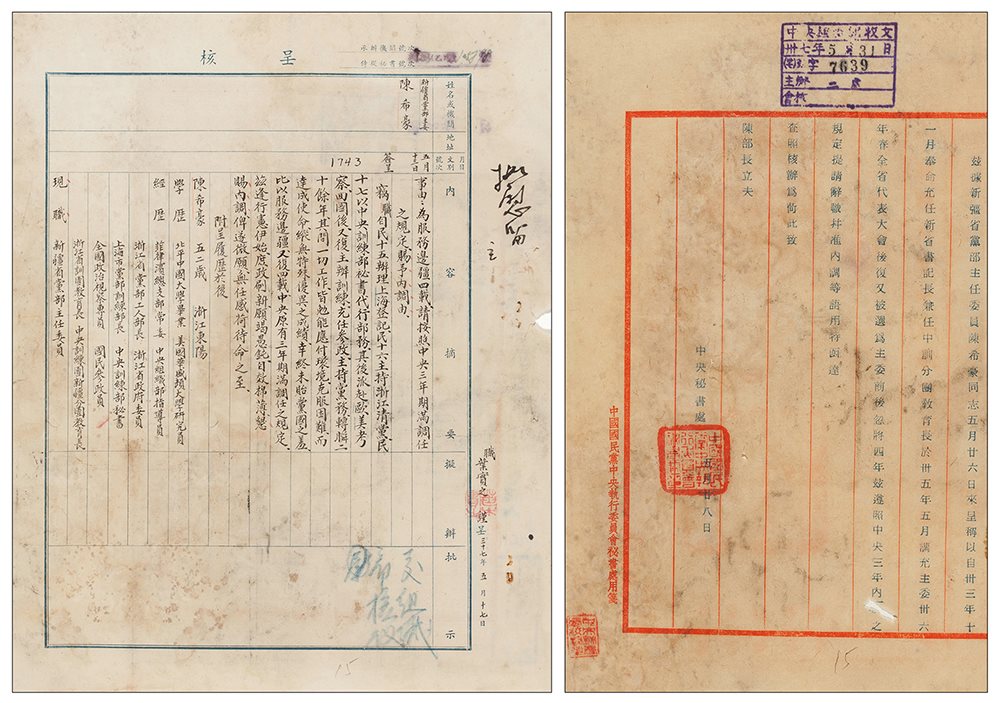 呈核
姓名或機關
地址
新疆省黨部主委
陳希豪
月日
文別
號次
五月
十三日
簽呈
1743
內容摘要
擬辦
批示
事由:為服務邊疆四載請按照中央三年期滿調任
之規定賜予內調由
竊職自民十五辦理上海登記民十六主持浙江清黨民
十七以中央訓練部秘書代行部務其後派赴歐美考
察回國後又復主辦訓練充任參政主持黨務轉瞬二
十餘年其間一切工作皆勉能應付環境克服困難而
達成使命縱無特殊優異之成績幸終未貽黨國之羞
此以服務邊疆又復四載中央原有三年期滿調任之規定
茲逢行憲伊始庶政刷新願竭愚鈍自效棉薄懇
賜內調俾遂微願無任感荷待命之至
附呈履歷於後
陳希豪 五二歲 浙江東陽
學歷 北平中國大學畢業 美國華盛頓大學研究員
經歷 菲律濱總支部常委 中央組織部指導員
浙江省黨部工人部長 浙江省政府委員
上海市黨部訓練部長 中央訓練部秘書
全國政治視察專員 國民參政員
浙省訓團教育長 中央訓練團新疆分團教育長
現職 新疆省黨部主任委員
職 葉實之 謹呈 三十七年五月十七日
批慰留
交組織
15
中央秘書處收文
卅七年5月31日
字 7639
主辦 二處
會核
茲據新疆省黨部主任委員陳希豪同志五月廿六日來呈稱以自卅三年十
一月奉命充任新省書記長兼任中訓分團教育長於卅五年五月調充主委卅六
年春全省代表大會後復又被選為主委前後忽將四年茲遵照中央三年內調之
規定提請辭職并准內調等語用特函達
查照核辦為荷此致
陳部長立夫
中央秘書處
五月廿八日
中國國民黨中央執行委員會秘書處用箋
15